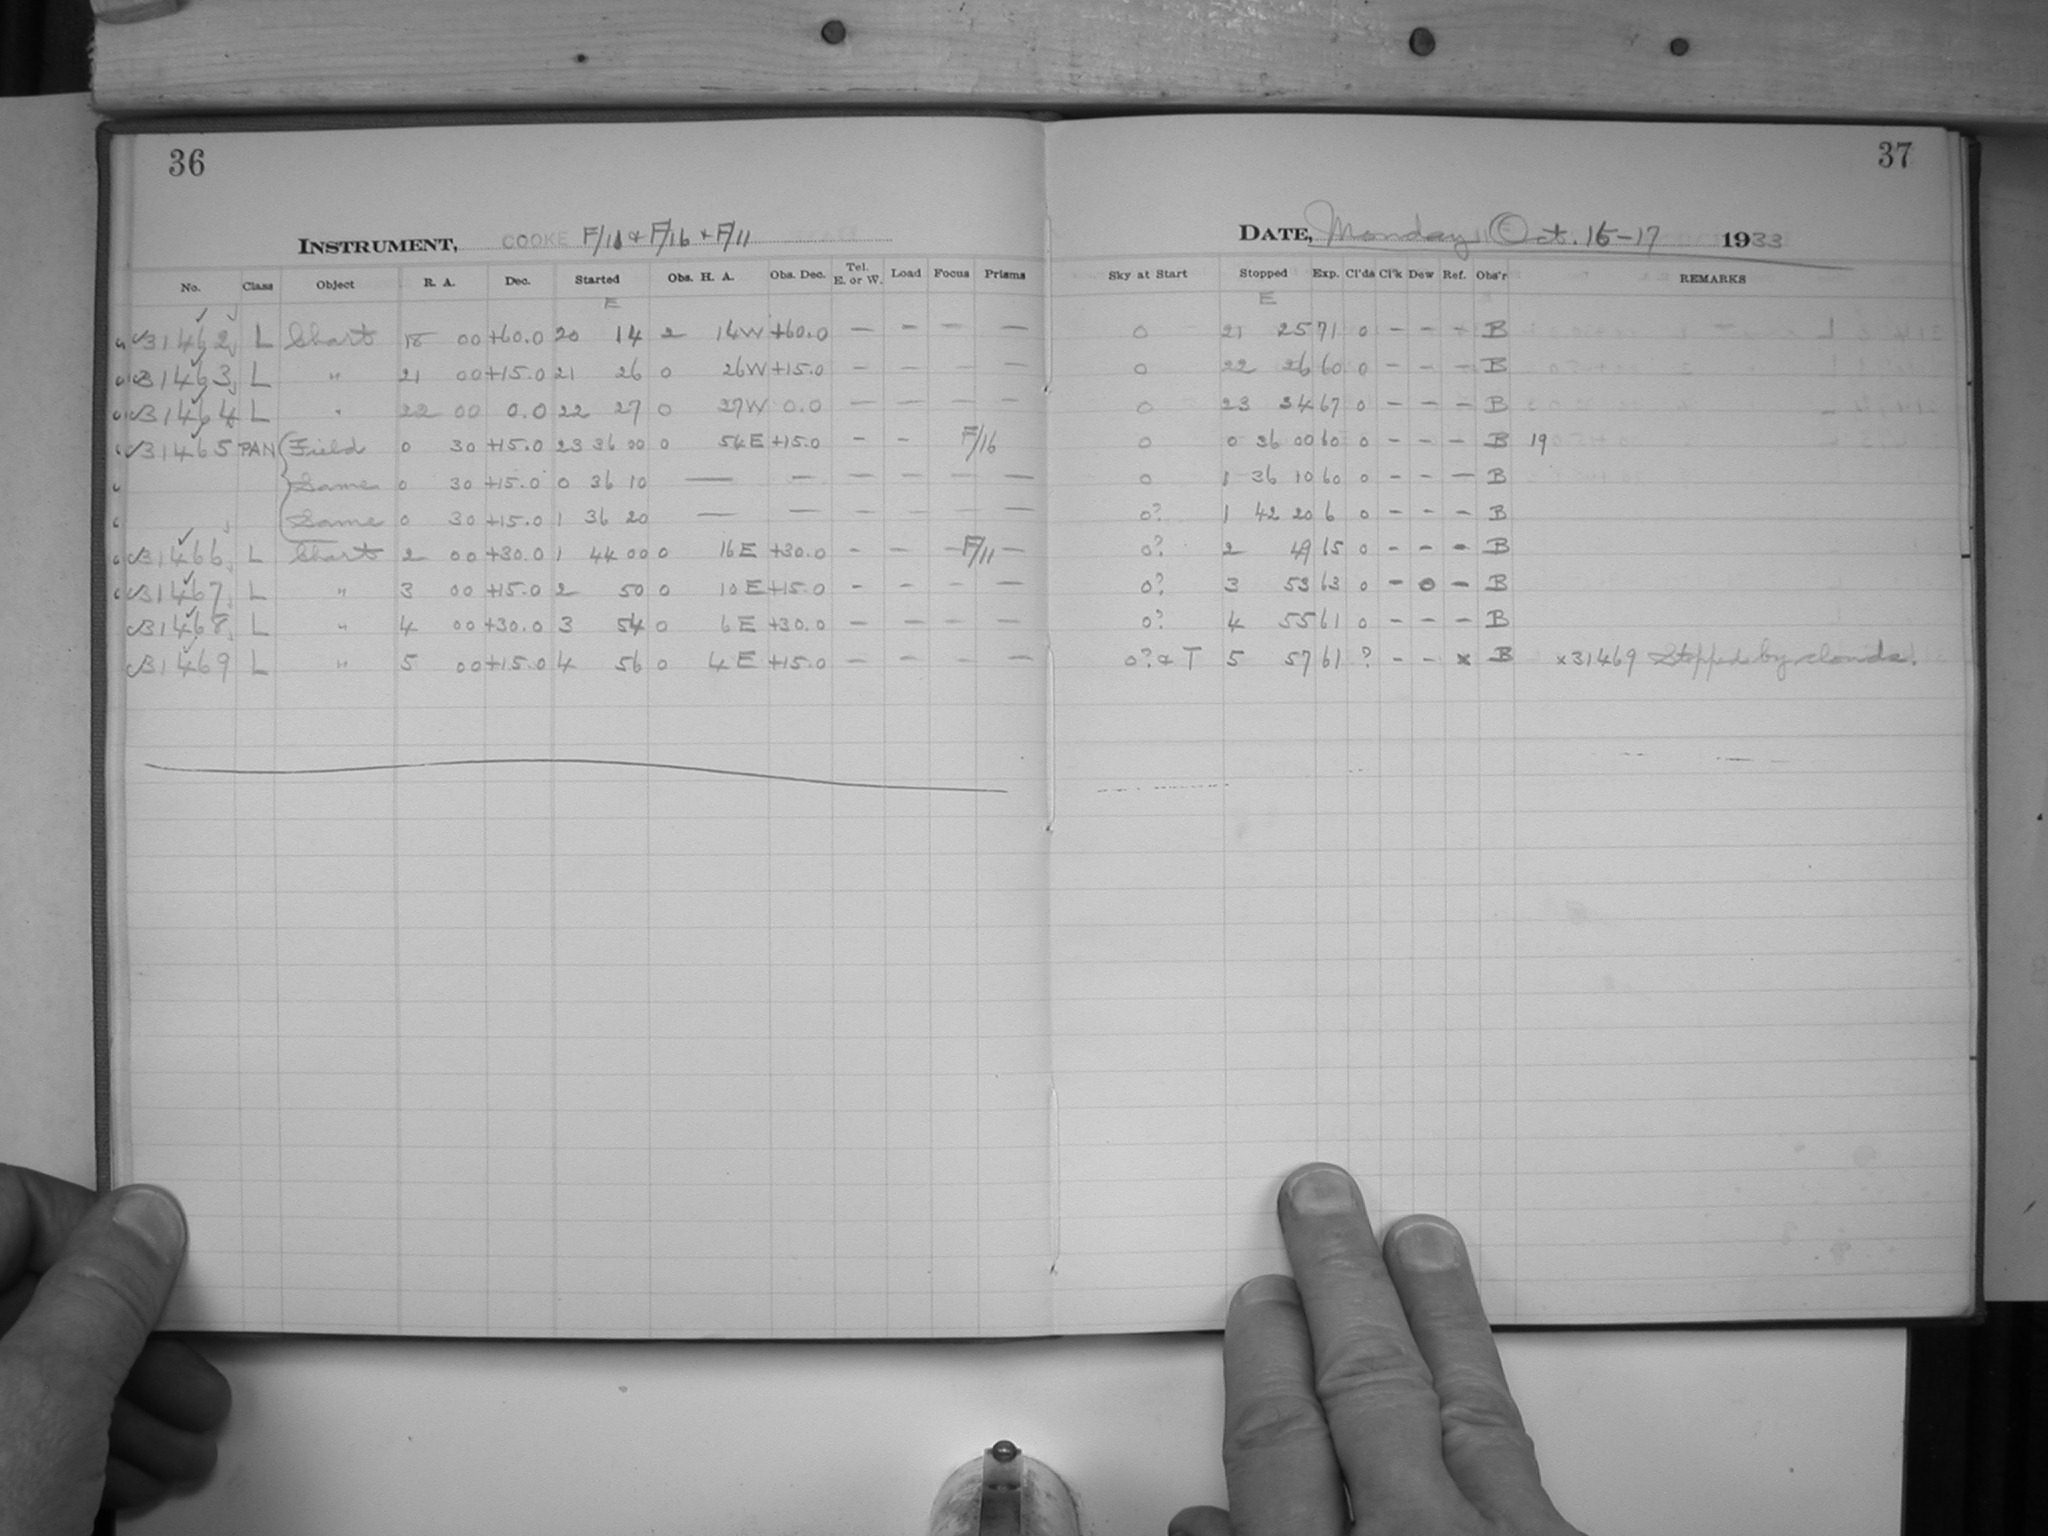 36
37
INSTRUMENT, COOKE F/11 + F/16 + F/11
DATE, Monday Oct. 16-17 1933
No. Class Object R. A. Dec. Started Obs. H. A. Obs. Dec. Tel. E. or W. Load Focus Prisms Sky at Start Stopped Exp. Cl'ds Cl'k Dew Ref. Obs'r REMARKS
E E
31462 L Chart 18 00 +60.0 20 14 2 14W +60.0 — — — — 0 21 25 71 0 — — — B
31463 L " 21 00 +15.0 21 26 0 26W +15.0 — — — — 0 22 26 60 0 — — — B
31464 L " 22 00 0.0 22 27 0 27W 0.0 — — — — 0 23 34 67 0 — — — B
31465 PAN Field 0 30 +15.0 23 36 00 0 54E +15.0 — — F/16 0 0 36 00 60 0 — — — B 19
Same 0 30 +15.0 0 36 10 — — — — — — 0 1 36 10 60 0 — — — B
Same 0 30 +15.0 1 36 20 — — — — — — 0? 1 42 20 6 0 — — — B
31466 L Chart 2 00 +30.0 1 44 00 0 16E +30.0 — — — F/11 — 0? 2 49 65 0 — — — B
31467 L " 3 00 +15.0 2 50 0 10E +15.0 — — — — 0? 3 53 63 0 — 0 — B
31468 L " 4 00 +30.0 3 54 0 6E +30.0 — — — — 0? 4 55 61 0 — — — B
31469 L " 5 00 +15.0 4 56 0 4E +15.0 — — — — 0? + T 5 57 61 ? — — x B x31469 Stopped by clouds.